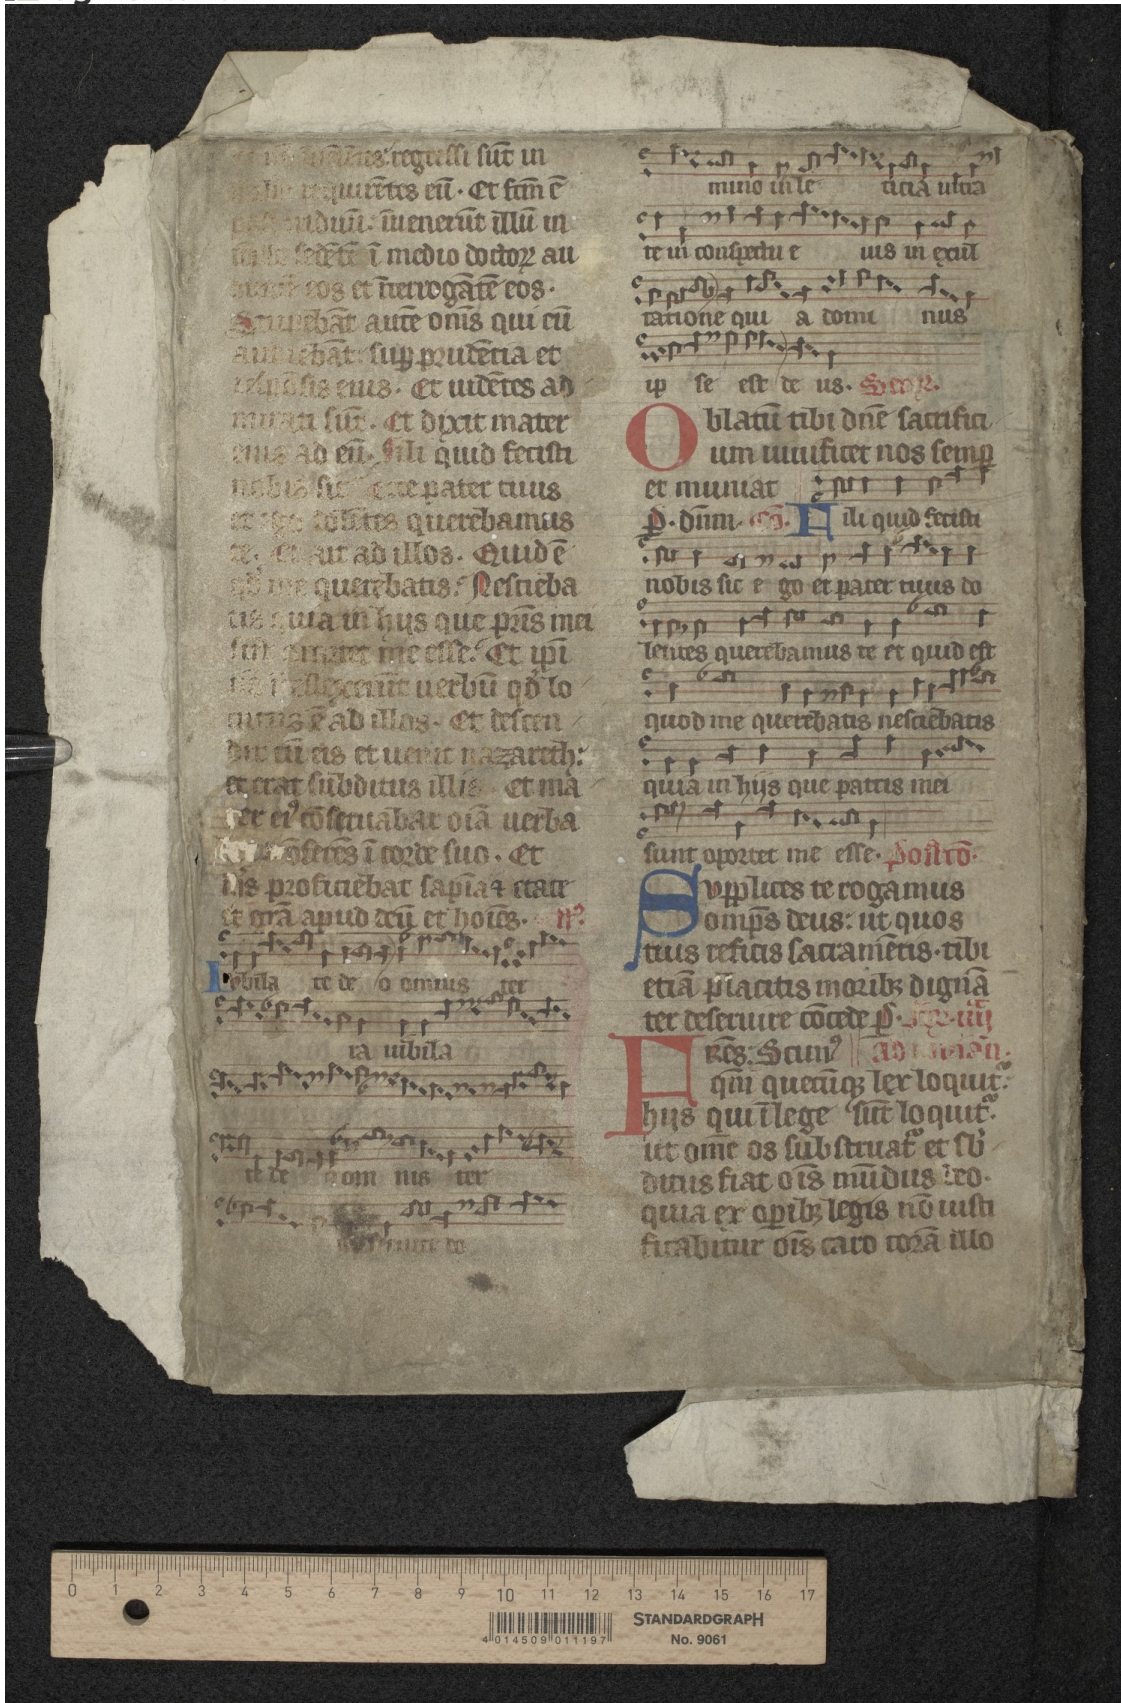 regressi sūt in
requirētes eū · Et fcm̄ ē
īuenerūt illū in
sedētē ī medio doctoꝝ au
eos et īterrogātē eos ·
Stupebāt autē om̄s qui eū
audiebāt : suꝑ prudētia et
respōsis eius · Et uidētes ad
mirati sūt · Et dixit mater
eius ad eū · Fili quid fecisti
nobis sic pater tuus
et ego dolētes querebamus
te · Et ait ad illos · Quid ē
qd̄ me querebatis : Nescieba
tis quia in hijs que pr̄is mei
sūt oportet me esse : Et ip̄i
nō ītellexerūt uerbū qd̄ lo
cutus ē ad illos · Et descen
dit cū eis et uenit nazareth :
et erat subditus illis Et ma
ter eiꝰ cōseruabat oīa uerba
cōferēs ī corde suo · Et
ih̄s proficiebat sapīa ⁊ etate
et grā apud deū et hoīes ·
Iubila te de o omnis ter
ra iubila
te de o om nis ter
mino in le ticia ultra
te in conspectu e ius in exul
tatione qui a domi nus
ip se est de us · Secꝝ ·
Oblatū tibi dn̄e sacrifici
um uiuificet nos semꝑ
et muniat
P̄ · dn̄m · Cō · Fili quid fecisti
nobis sic e go et pater tuus do
lentes querebamus te et quid est
quod me querebatis nesciebatis
quia in hijs que patris mei
sunt oportet me esse · Postcō ·
Supplices te rogamus
omp̄s deus : ut quos
tuis reficis sacramētis · tibi
etiā placitis moribꝫ dignā
ter deseruire cōcede P̄ ·
Fr̄es : Scimꝰ ad
qm̄ quecūqꝫ lex loquit͛ :
hijs qui ī lege sūt loquit͛ :
ut om̄e os obstruat͛ et sb̄
ditus fiat oīs mūdus deo ·
quia ex oꝑibꝫ legis nō iusti
ficabitur oīs caro corā illo
0 1 2 3 4 5 6 7 8 9 10 11 12 13 14 15 16 17
4 014509 011197
STANDARDGRAPH
No. 9061